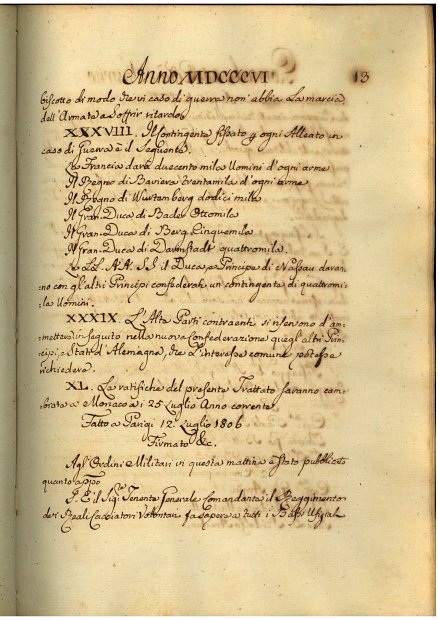 Anno MDCCCVI 13
biscotto di modo che in caso di guerra non' abbia La marcia
dell'Armata a Soffrir ritardo.
XXXVIII. Il Contingente fissato p ogni Alleato in
caso di Guerra è il Seguente.
La Francia darà duecento mila Uomini d'ogni arme
Il Regno di Baviera trentamila d'ogni arme
Il Regno di Wurtemberg dodici mille
Il Gran-Duca di Bade Ottomila
Il Gran-Duca di Berg Cinquemila
Il Gran-Duca di Darmstadt quattromila
Le LL. AA. SS. il Duca, e Principe di Nassau daran-
no con gl'altri Principi confederati un contingente di quattromi-
la Uomini.
XXXIX. L'Alte Parti contraenti si riservono d'am-
mettere in seguito nella nuova Confederazione quegl'altri Prin-
cipi, e Stati d'Alemagna, che L'interesse comune potesse
richiedere.
XL. La ratifiche del presente Trattato saranno cam-
biate a Monaco a i 25 Luglio Anno corrente.
Fatto a Parigi 12 Luglio 1806
Firmato &c.
Agl'Ordini Militari in questa mattina è stato pubblicato
quanto appo
S. E. il Sigr Tenente Generale Comandante il Reggimento
dei Reali Cacciatori Volontari fa sapere a tutti i Bassi Uffizial